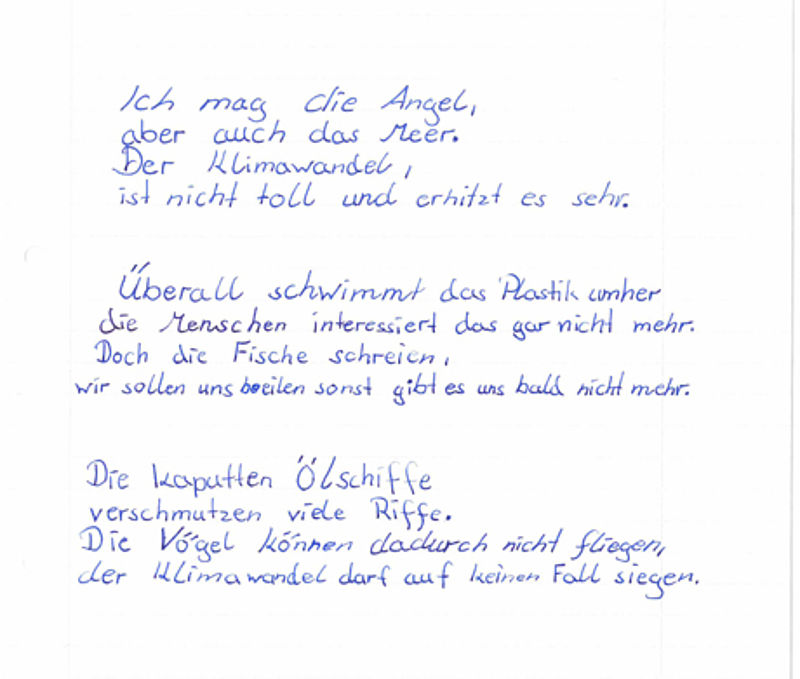 Ich mag die Angel,
aber auch das Meer.
Der Klimawandel,
ist nicht toll und erhitzt es sehr.
Überall schwimmt das Plastik umher
die Menschen interessiert das gar nicht mehr.
Doch die Fische schreien,
wir sollen uns beeilen sonst gibt es uns bald nicht mehr.
Die kaputten Ölschiffe
verschmutzen viele Riffe.
Die Vögel können dadurch nicht fliegen,
der Klimawandel darf auf keinen Fall siegen.